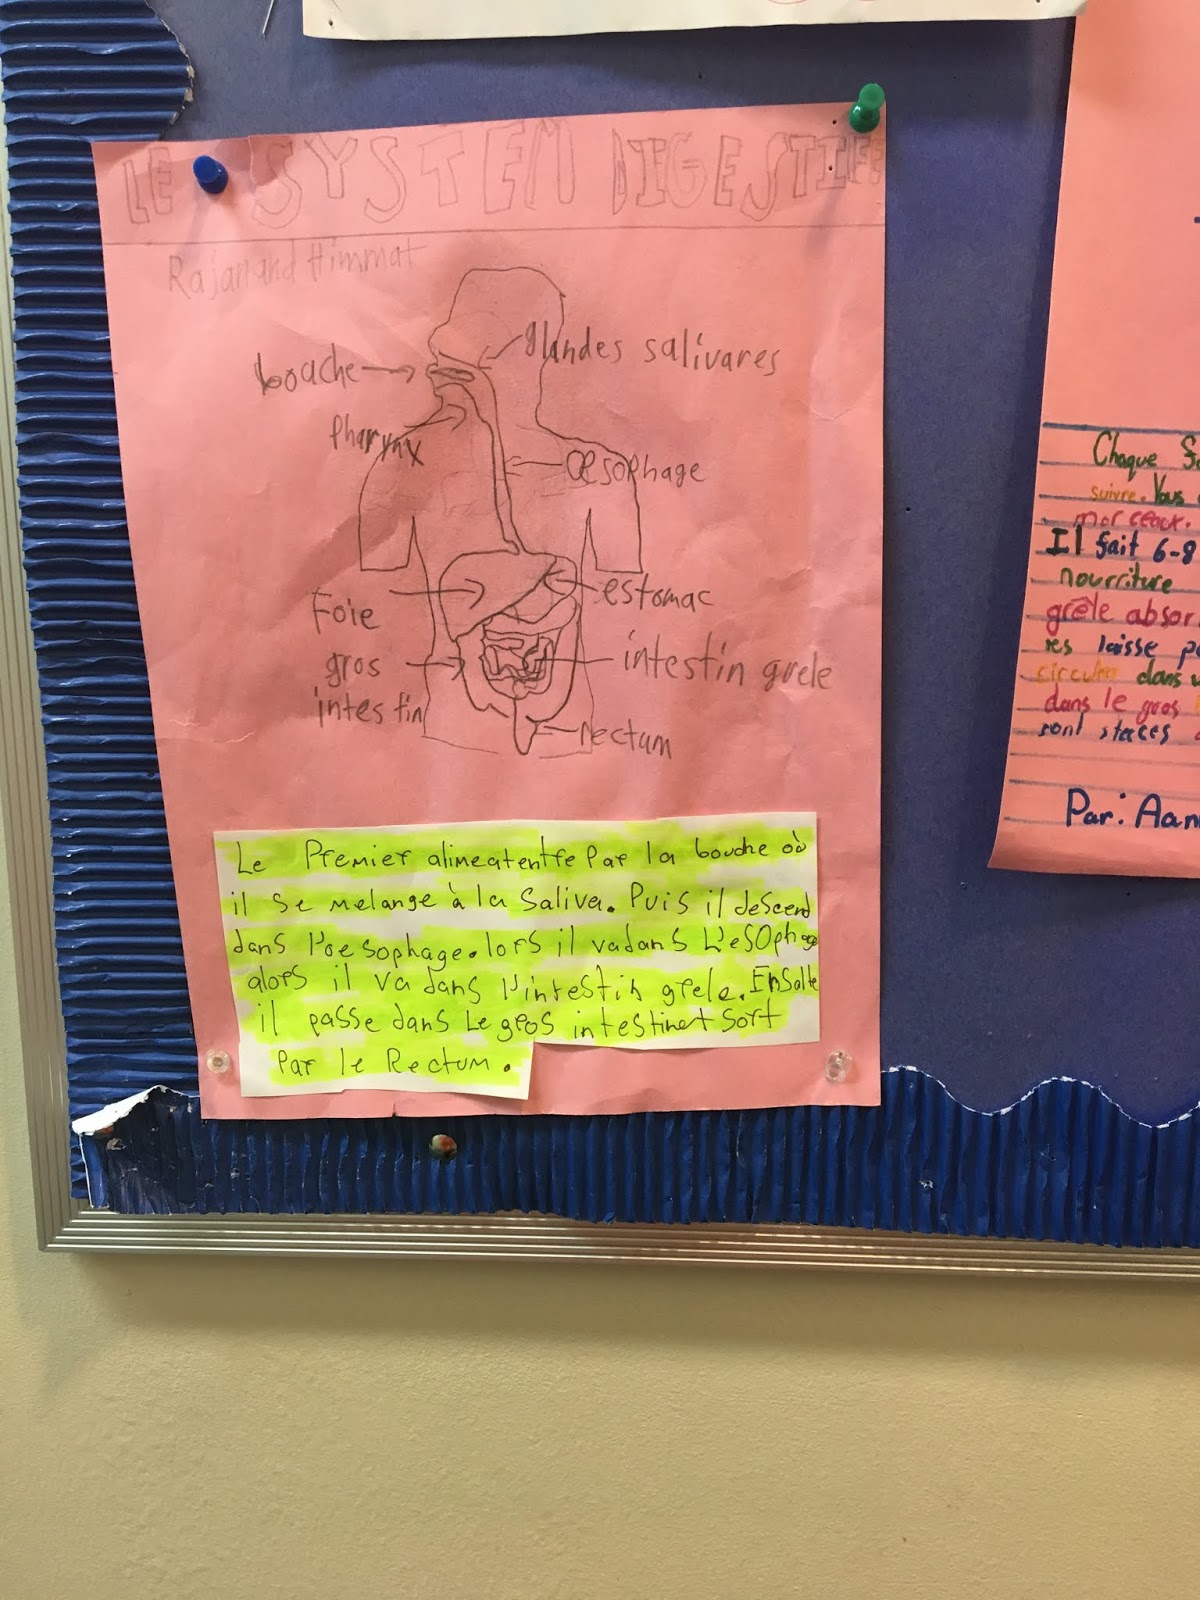 LE SYSTEM DIGESTIFE
Rajan and Himmat
bouche
glandes salivares
pharynx
œsophage
Foie
estomac
gros
intestin
intestin grele
rectum
Le Premier alimeatentre Par la bouche où
il se melange à la Saliva. Puis il descend
dans l'oesophage. lors il vadans L'esophage
alors il va dans l'intestin grele. Ensuite
il passe dans Le gros intestinet sort
Par le Rectum.
Chaque
suivre. Vous
morceaux.
Il fait 6-8
nourriture
grêle absor
res laisse
circuler dans
dans le gros
sont
Par: Aan